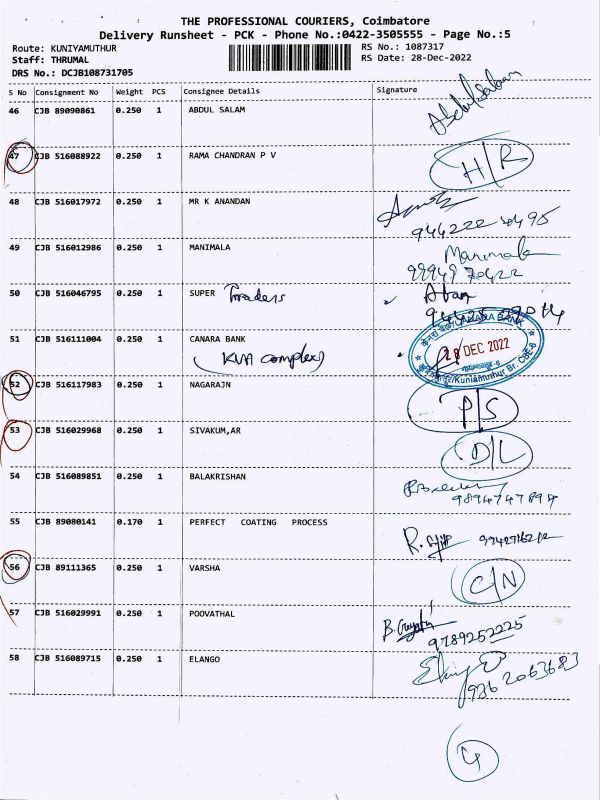 THE PROFESSIONAL COURIERS, Coimbatore
Delivery Runsheet - PCK - Phone No.:0422-3505555 - Page No.:5
Route: KUNIYAMUTHUR RS No.: 1087317
Staff: THRUMAL RS Date: 28-Dec-2022
DRS No.: DCJB108731705
S No Consignment No Weight PCS Consignee Details Signature
46 CJB 89090861 0.250 1 ABDUL SALAM Abdul Salaam
47 CJB 516088922 0.250 1 RAMA CHANDRAN P V H/R
48 CJB 516017972 0.250 1 MR K ANANDAN
49 CJB 516012986 0.250 1 MANIMALA Manimala
99949 70422
50 CJB 516046795 0.250 1 SUPER Traders
51 CJB 516111004 0.250 1 CANARA BANK CANARA BANK
(KVA complex) 28 DEC 2022
Kuniamuthur Br. CBE-8
52 CJB 516117983 0.250 1 NAGARAJN P/S
53 CJB 516029968 0.250 1 SIVAKUM,AR D/L
54 CJB 516089851 0.250 1 BALAKRISHAN
55 CJB 89080141 0.170 1 PERFECT COATING PROCESS
56 CJB 89111365 0.250 1 VARSHA C/N
57 CJB 516029991 0.250 1 POOVATHAL
9789252225
58 CJB 516089715 0.250 1 ELANGO
936 2063683